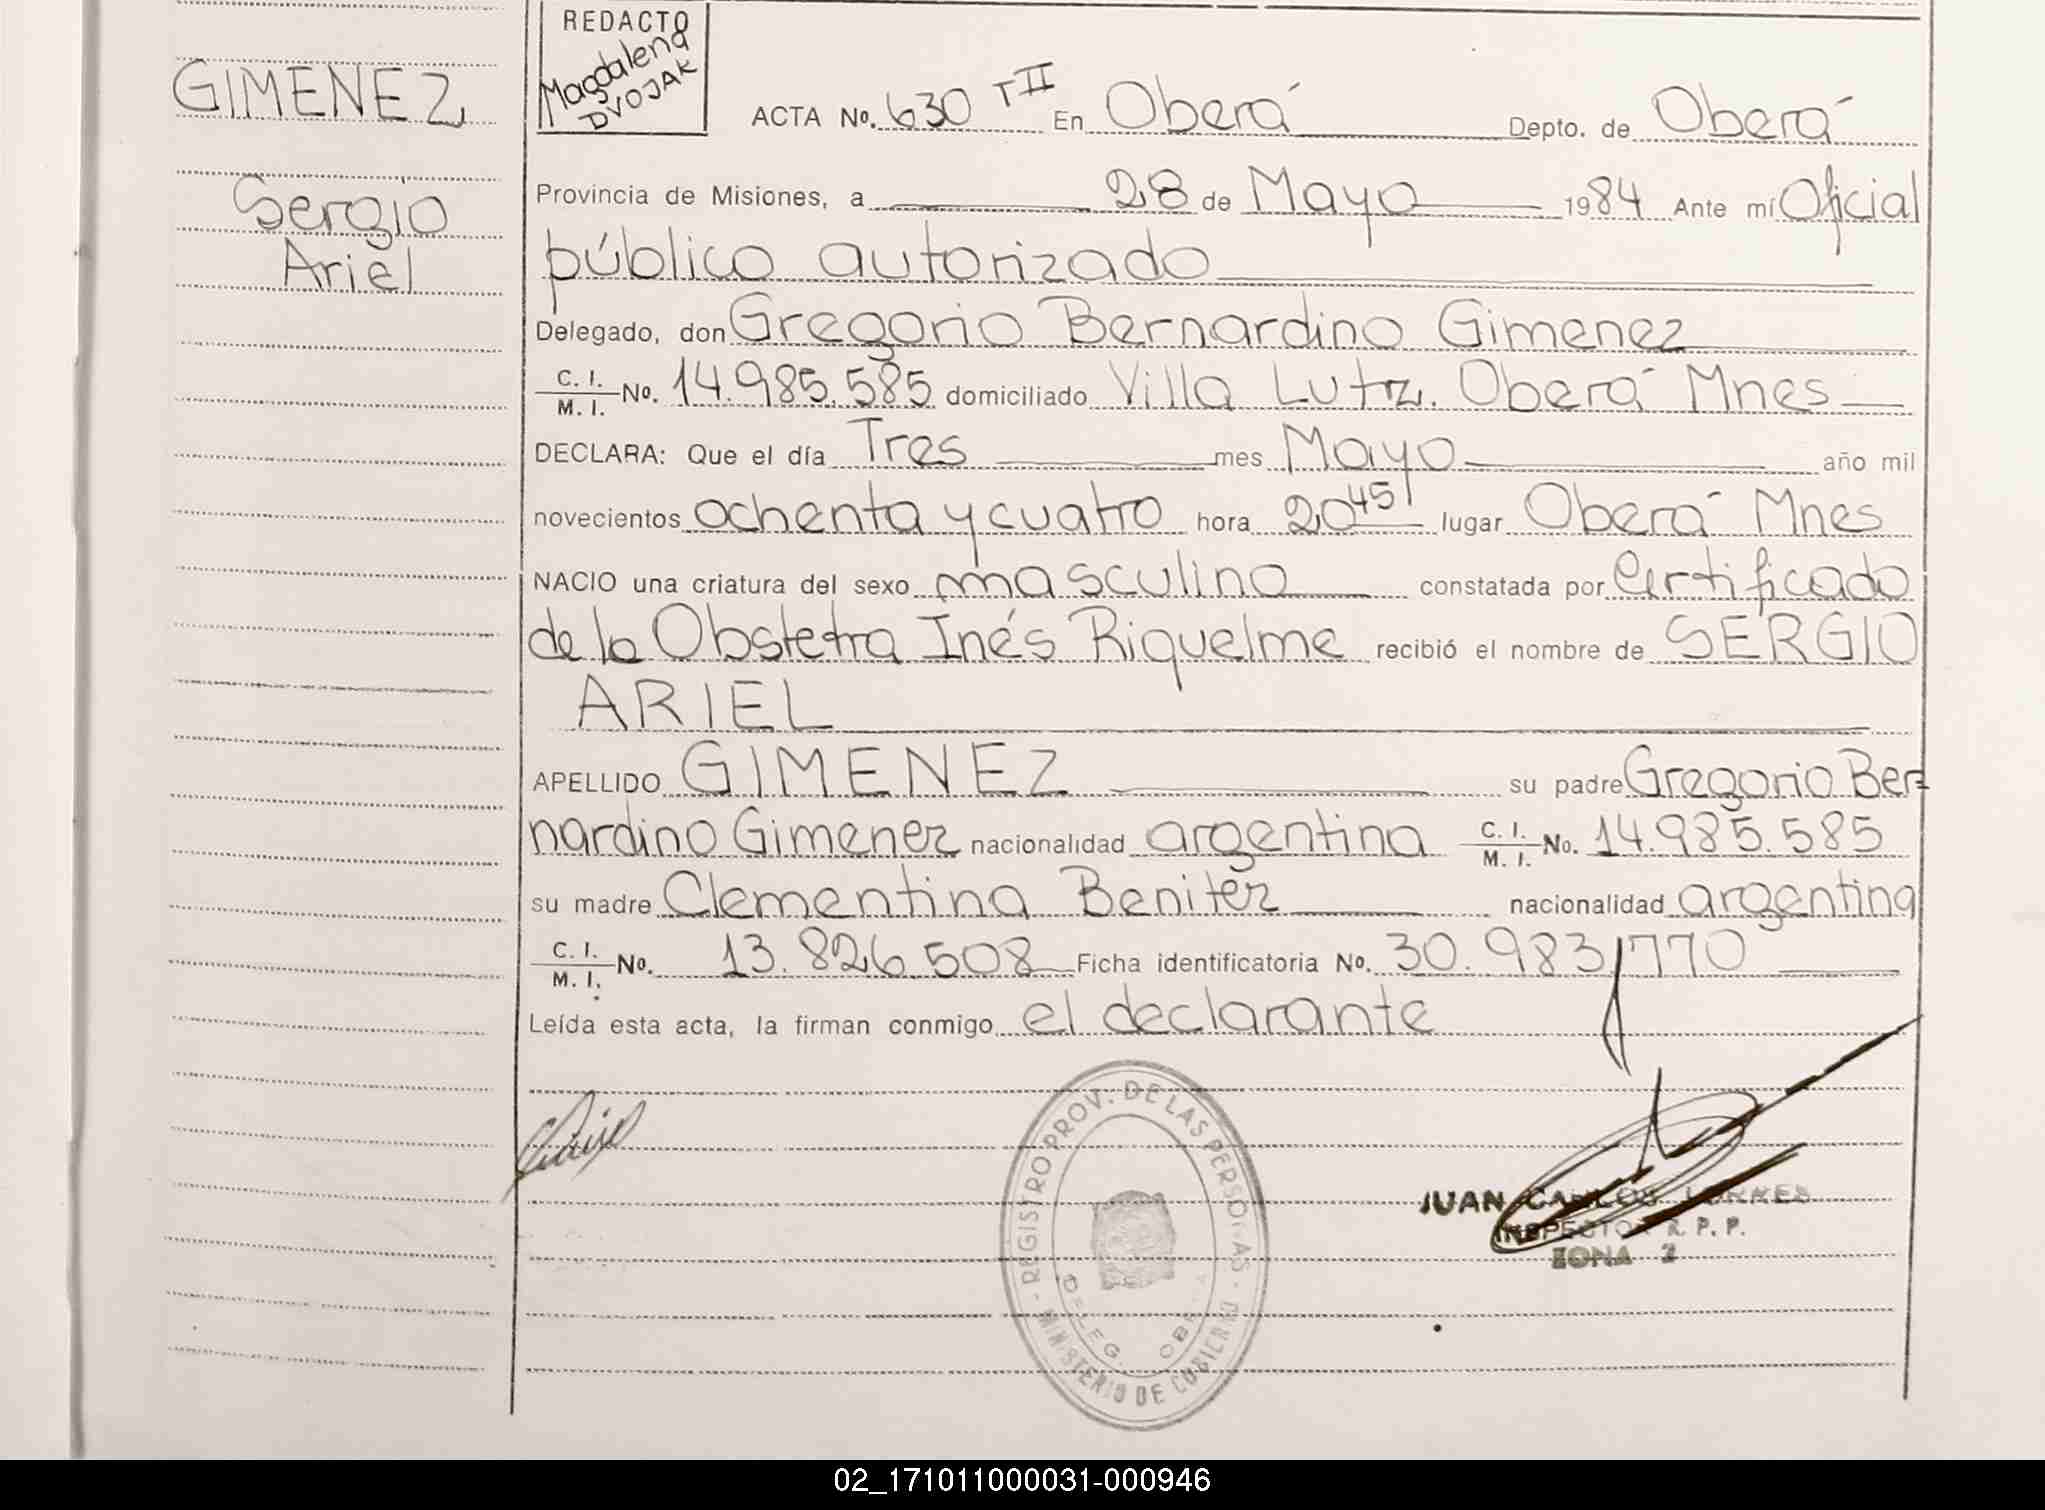 GIMENEZ
Sergio
Ariel
REDACTO
Magdalena
DVOJAK
ACTA No. 630 T II En Oberá Depto. de Oberá
Provincia de Misiones, a 28 de Mayo 1984 Ante mí Oficial
público autorizado
Delegado, don Gregorio Bernardino Gimenez
C. I. / M. I. No. 14.985.585 domiciliado Villa Lutz. Oberá Mnes
DECLARA: Que el día Tres mes Mayo año mil
novecientos ochenta y cuatro hora 20 45 lugar Oberá Mnes
NACIO una criatura del sexo masculino constatada por Certificado
de la Obstetra Inés Riquelme recibió el nombre de SERGIO
ARIEL
APELLIDO GIMENEZ su padre Gregorio Ber=
nardino Gimenez nacionalidad argentina C. I. / M. I. No. 14.985.585
su madre Clementina Benitez nacionalidad argentina
C. I. / M. I. No. 13.826.508 Ficha identificatoria No. 30.983.770
Leída esta acta, la firman conmigo el declarante
REGISTRO PROV. DE LAS PERSONAS - MINISTERIO DE GOBIERNO
DELEG. OBERA
JUAN CARLOS TORRES
INSPECTOR R. P. P.
ZONA 2
02_171011000031-000946